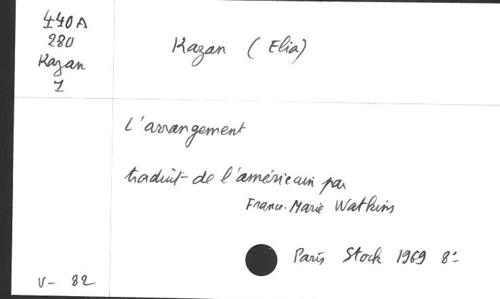 440A
280
Kazan
1
Kazan (Elia)
L'arrangement
traduit de l'américain par
France-Marie Watkins
Paris Stock 1969 8°
V- 82